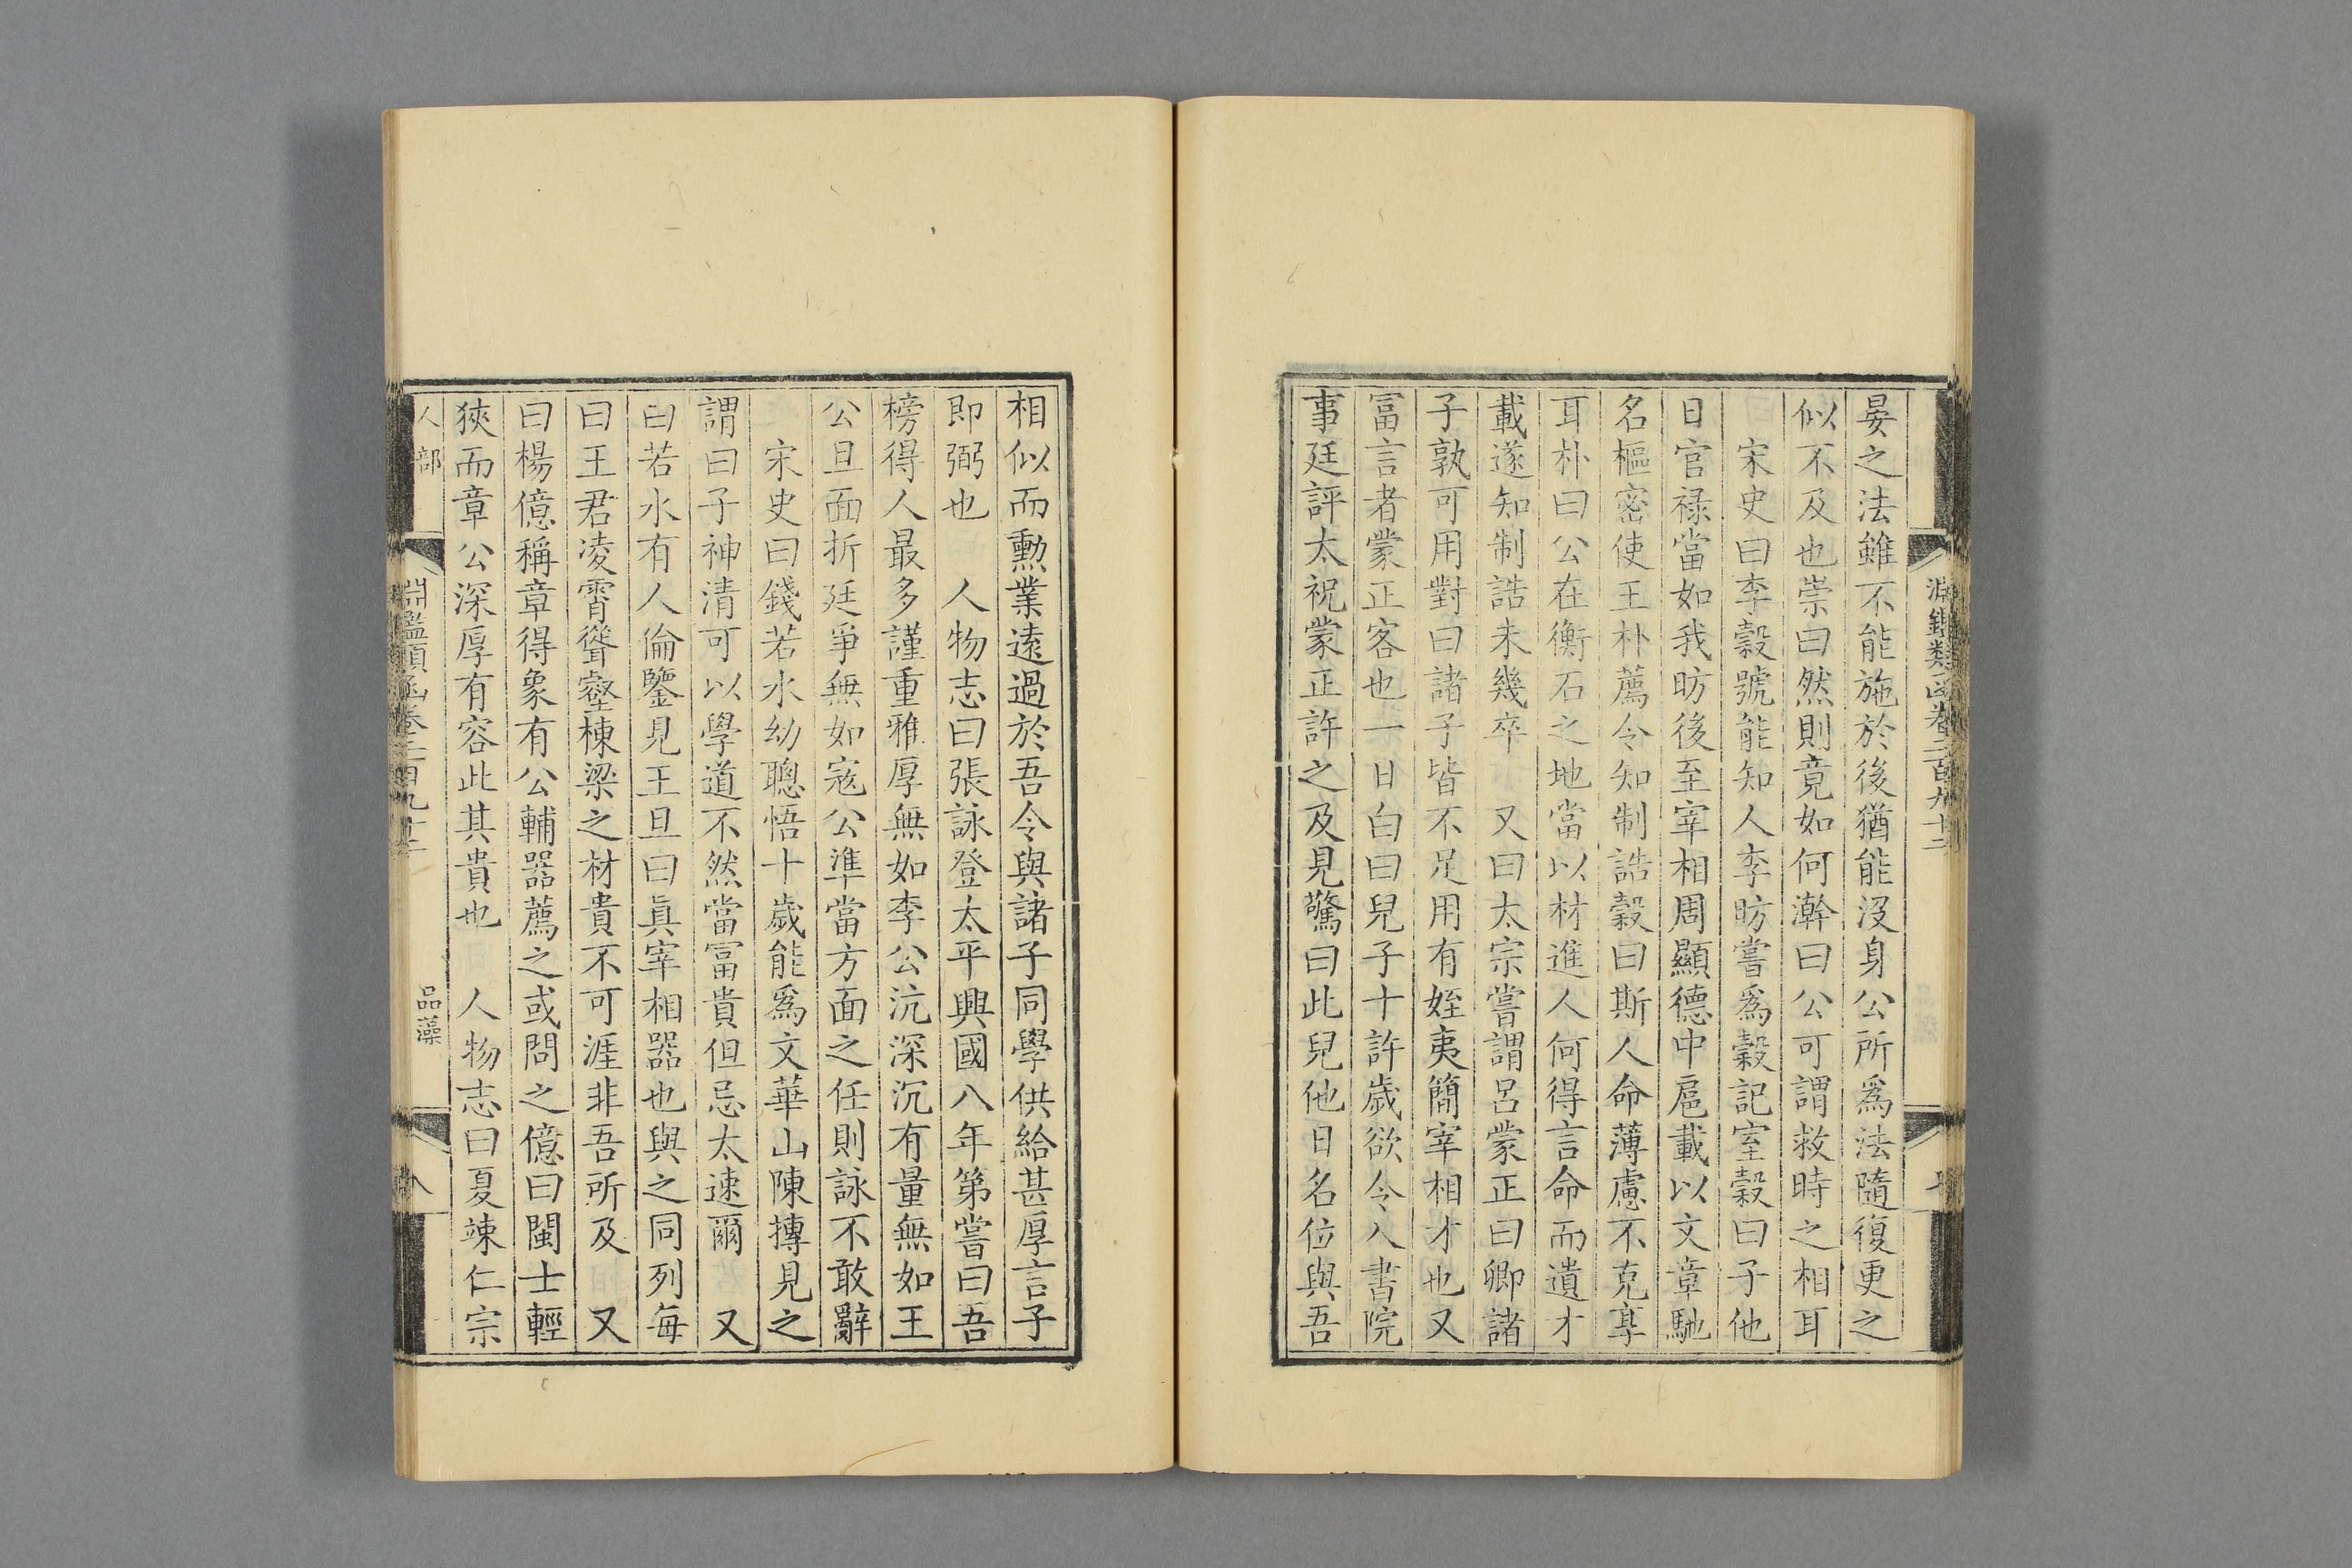 晏之法雖不能施於後猶能沒身公所爲法隨復更之
似不及也崇曰然則竟如何澣曰公可謂救時之相耳
宋史曰李穀號能知人李昉嘗爲穀記室穀曰子他
日官祿當如我昉後至宰相周顯德中扈載以文章馳
名樞密使王朴薦令知制誥穀曰斯人命薄慮不克享
耳朴曰公在衡石之地當以材進人何得言命而遺才
載遂知制誥未幾卒　又曰太宗嘗謂呂蒙正曰卿諸
子孰可用對曰諸子皆不足用有姪夷簡宰相才也又
冨言者蒙正客也一日白曰兒子十許歲欲令入書院
事廷評太祝蒙正許之及見驚曰此兒他日名位與吾
淵鑑類函卷二百九十二
相似而勲業遠過於吾令與諸子同學供給甚厚言子
即弼也　人物志曰張詠登太平興國八年第嘗曰吾
榜得人最多謹重雅厚無如李公沆深沉有量無如王
公旦面折廷爭無如寇公準當方面之任則詠不敢辭
宋史曰錢若水幼聰悟十歲能爲文華山陳摶見之
謂曰子神清可以學道不然當冨貴但忌太速爾　又
曰若水有人倫鑒見王旦曰眞宰相器也與之同列每
曰王君凌霄聳壑棟梁之材貴不可涯非吾所及　又
曰楊億稱章得象有公輔器薦之或問之億曰閩士輕
狹而章公深厚有容此其貴也　人物志曰夏竦仁宗
人部　淵鑑類函卷二百九十二　品藻　八